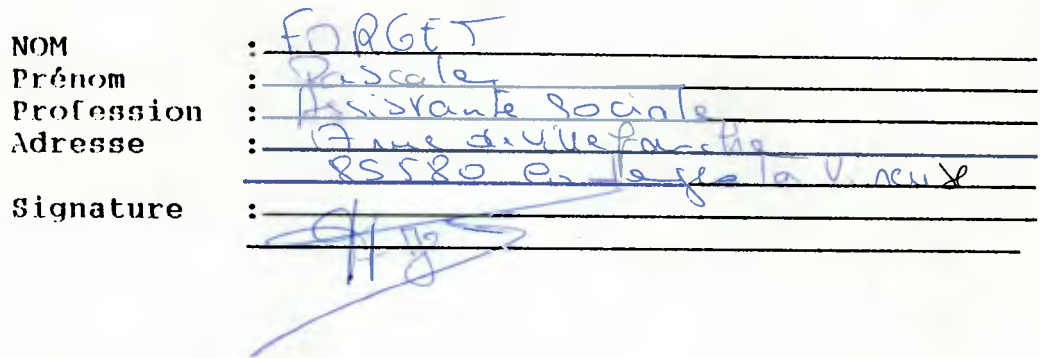 NOM : FORGET
Prénom : Pascale
Profession : Assistante Sociale
Adresse : 17 rue de Villefranche
85580 la V.
Signature :